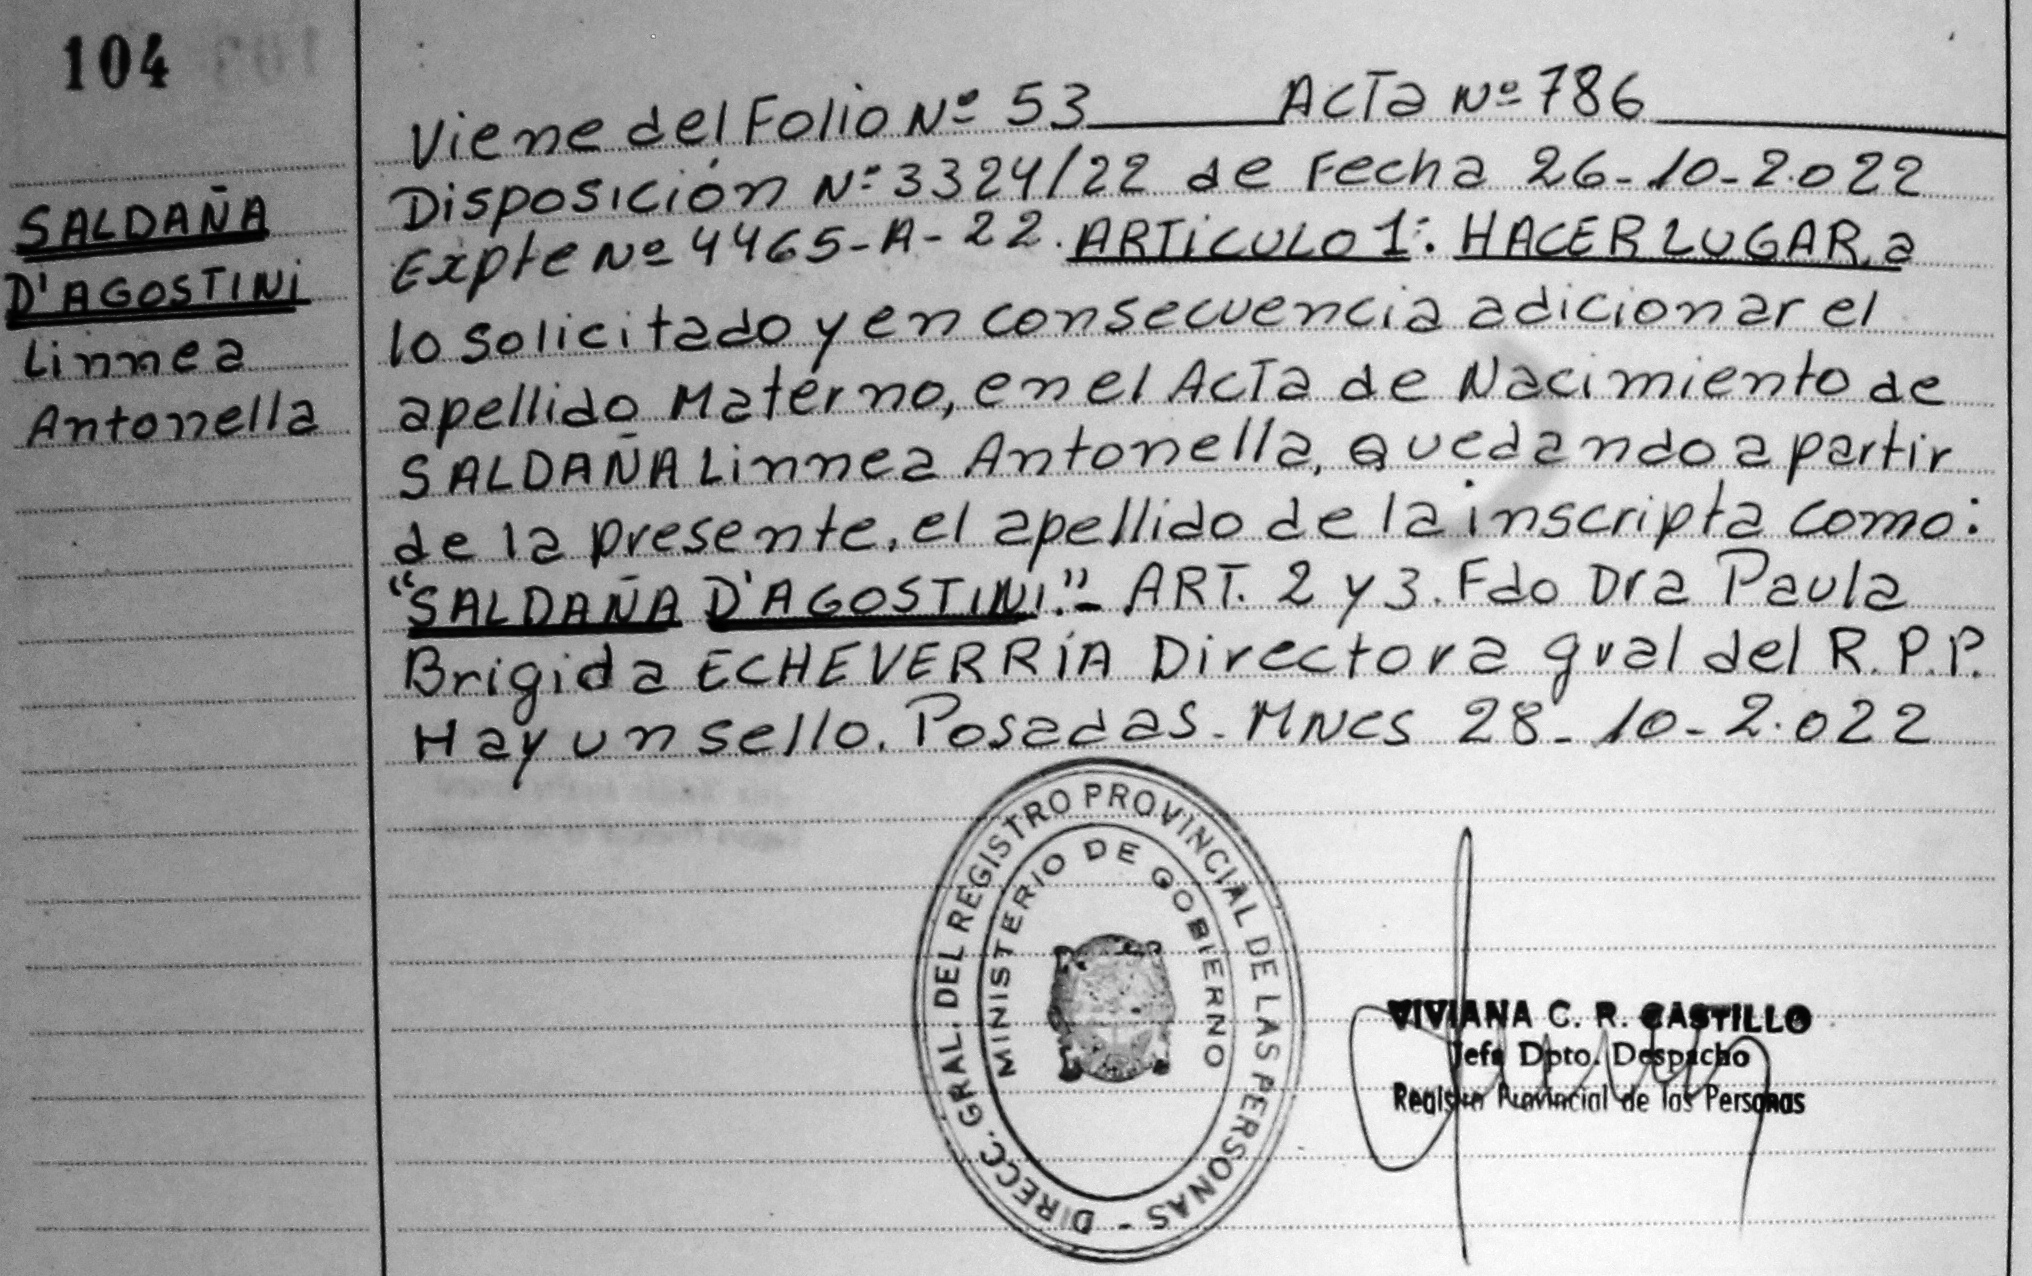 104
SALDAÑA
D'AGOSTINI
Linnea
Antonella
Viene del Folio Nº 53 Acta Nº 786
Disposición Nº 3324/22 de Fecha 26-10-2.022
Expte Nº 4465-A-22. ARTiCULO 1º: HACER LUGAR a
lo solicitado y en consecuencia adicionar el
apellido Materno, en el Acta de Nacimiento de
SALDAÑA Linnea Antonella, Quedando a partir
de la presente, el apellido de la inscripta como:
"SALDAÑA D'AGOSTINI."- ART. 2 y 3. Fdo Dra Paula
Brigida ECHEVERRÍA Directora gral del R.P.P.
Hay un sello. Posadas - MNES 28-10-2.022
DIRECC. GRAL. DEL REGISTRO PROVINCIAL DE LAS PERSONAS -
MINISTERIO DE GOBIERNO
VIVIANA C. R. CASTILLO
Jefa Dpto. Despacho
Registro Provincial de las Personas